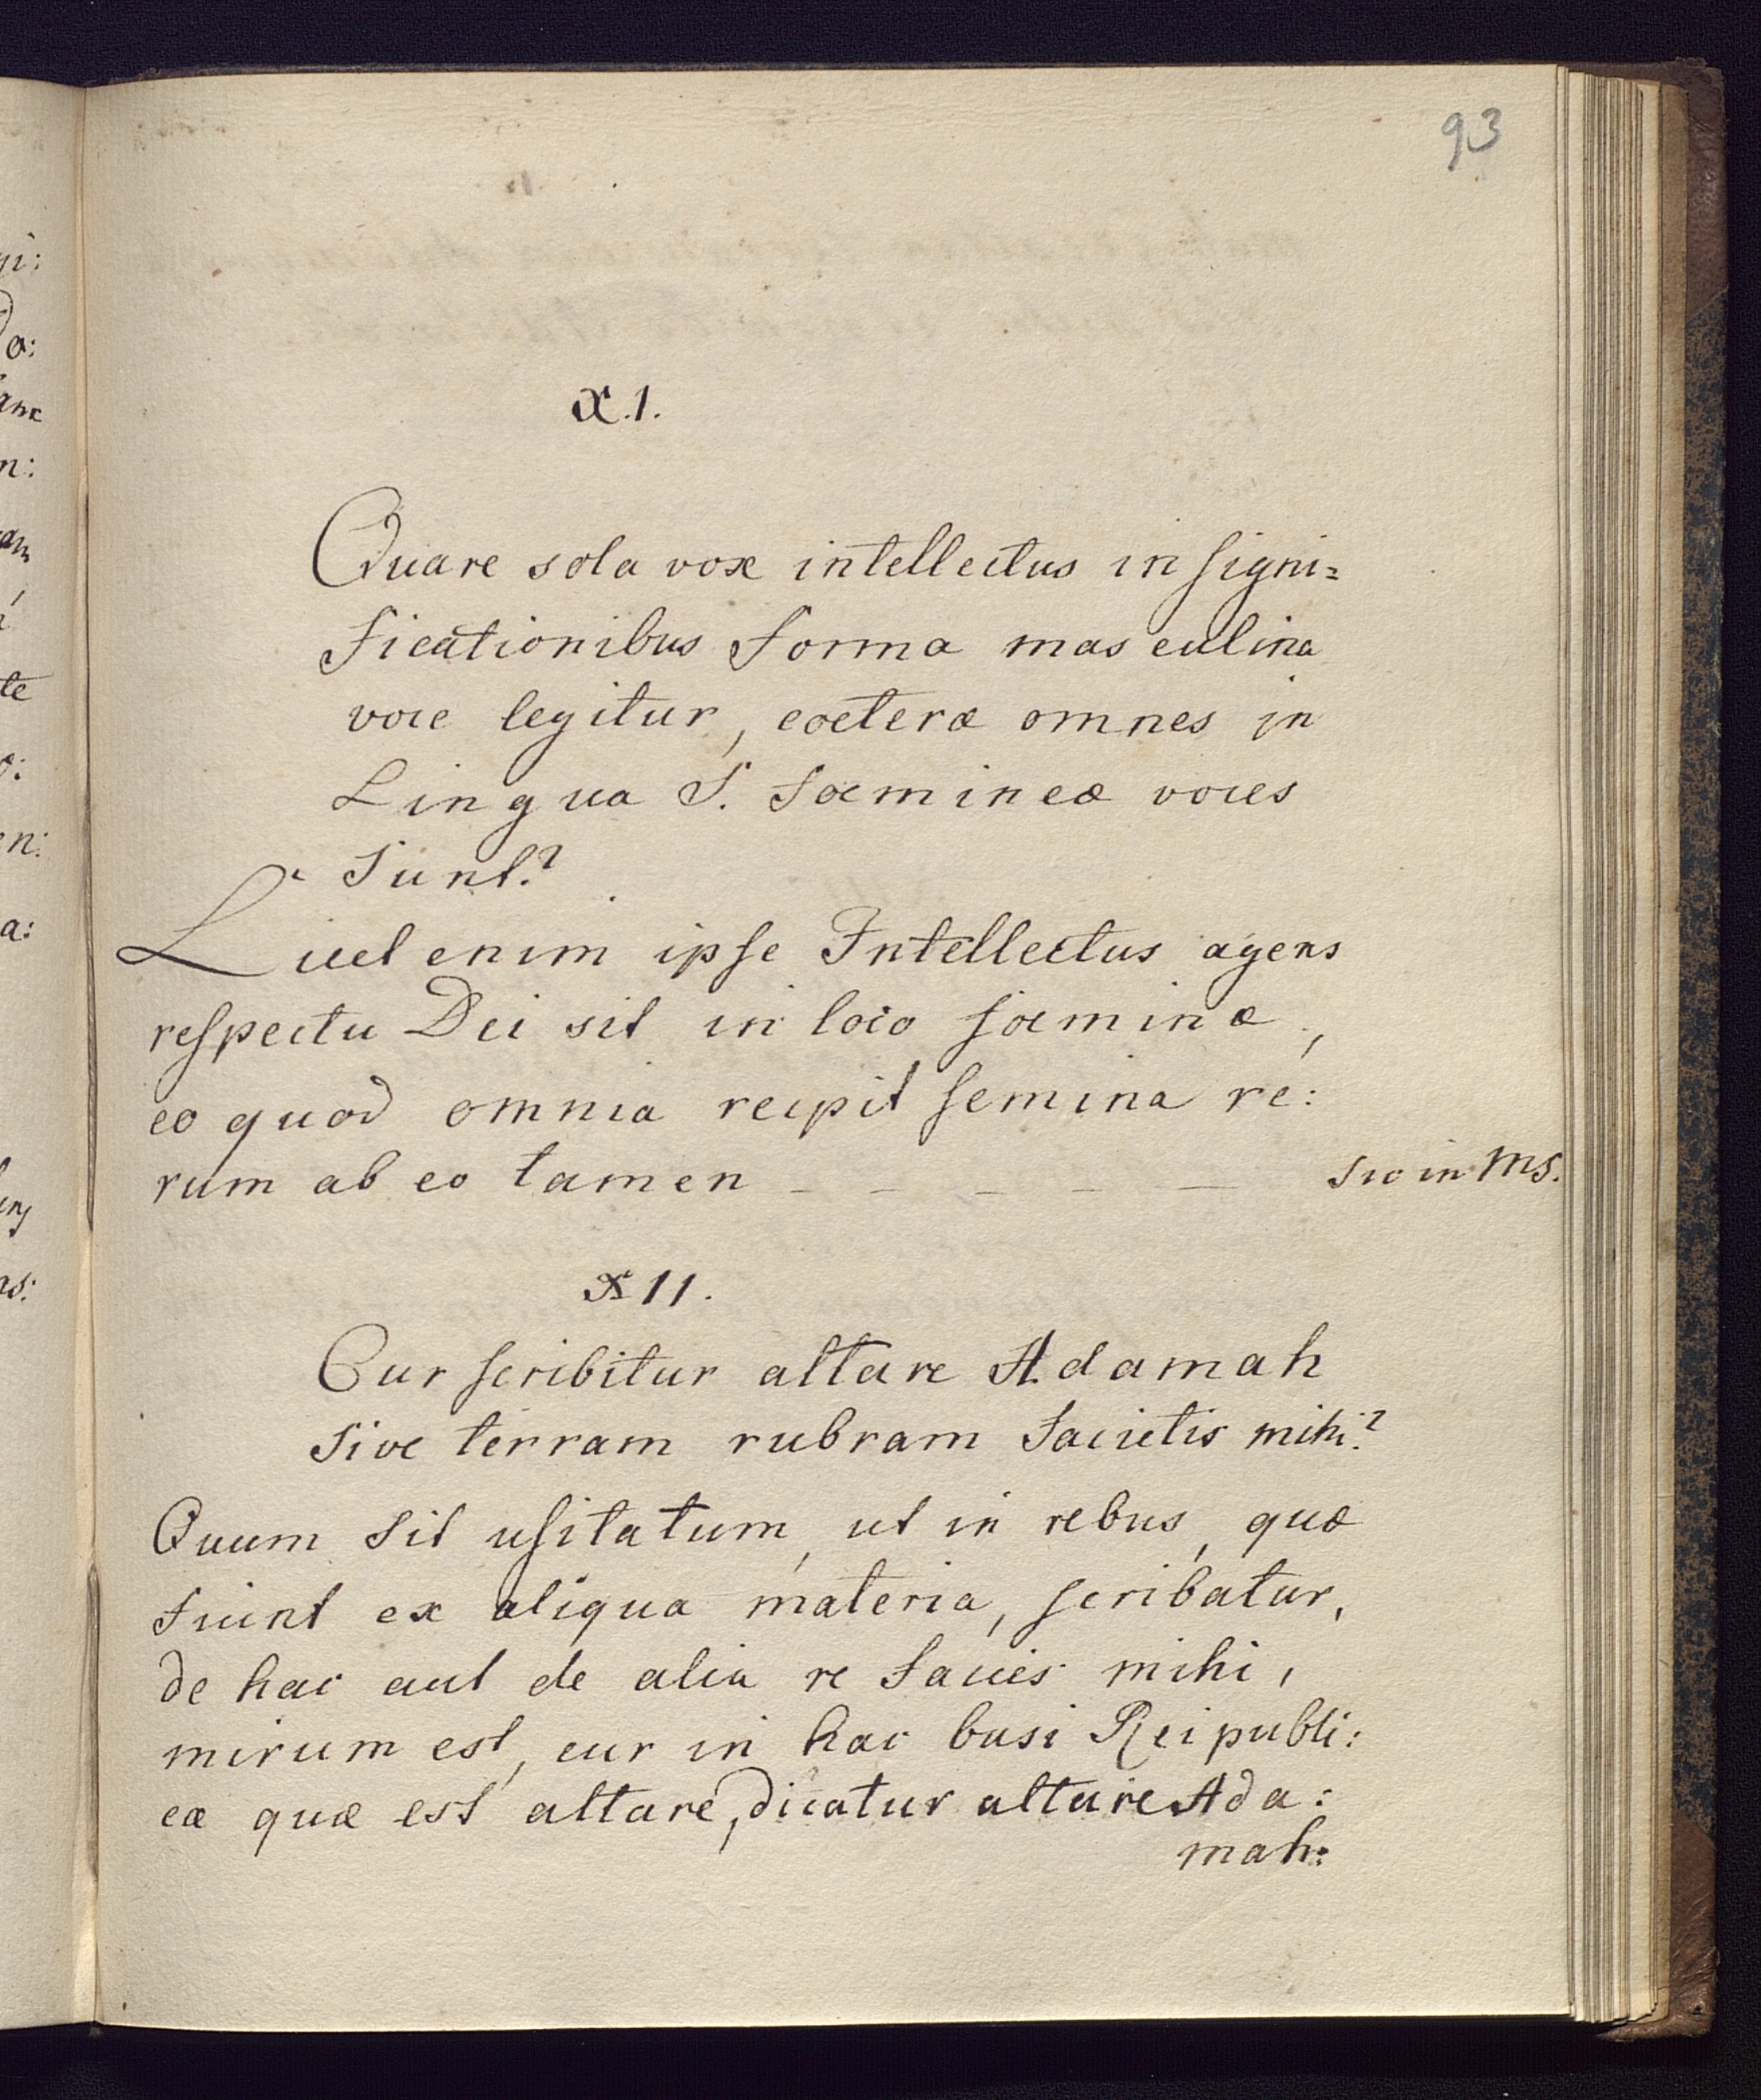 93
X.I.
Quare sola vox intellectus in signi=
ficationibus forma masculina
voce legitur, coeteræ omnes in
Lingua S. foemineæ voces
sunt?
Licet enim ipse Intellectus agens
respectu Dei sit in loco foeminæ,
eo quod omnia recipit semina re:
rum ab eo tamen - - - - - sic in MS.
XII.
Cur scribitur altare Adamah
sive terram rubram facietis mihi?
Quum sit usitatum, ut in rebus, quæ
fiunt ex aliqua materia, scribatur,
de hac aut de alia re facies mihi,
mirum est, cur in hac basi Reipubli:
cæ quæ est altare, dicatur altare Ada:
mah: